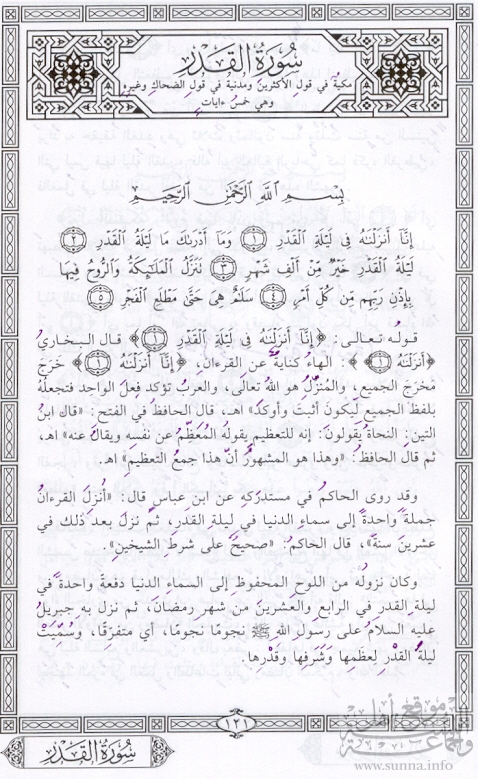 سُورَةُ القَدْرِ
مكية في قول الأكثرين ومدنية في قول الضحاك وغيره
وهي خمسُ ءايات
بِسْمِ اللَّهِ الرَّحْمَٰنِ الرَّحِيمِ
إِنَّا أَنزَلْنَٰهُ فِى لَيْلَةِ الْقَدْرِ ﴿١﴾ وَمَا أَدْرَىٰكَ مَا لَيْلَةُ الْقَدْرِ ﴿٢﴾
لَيْلَةُ الْقَدْرِ خَيْرٌ مِّنْ أَلْفِ شَهْرٍ ﴿٣﴾ تَنَزَّلُ الْمَلَٰئِكَةُ وَالرُّوحُ فِيهَا
بِإِذْنِ رَبِّهِم مِّن كُلِّ أَمْرٍ ﴿٤﴾ سَلَٰمٌ هِىَ حَتَّىٰ مَطْلَعِ الْفَجْرِ ﴿٥﴾
قوله تعالى: ﴿إِنَّا أَنزَلْنَٰهُ فِى لَيْلَةِ الْقَدْرِ ﴿١﴾﴾ قال البخاريُّ
﴿أَنزَلْنَٰهُ ﴿١﴾﴾: الهاءُ كنايةٌ عن القرءان، ﴿إِنَّا أَنزَلْنَٰهُ ﴿١﴾﴾ خَرَجَ
مَخرَجَ الجميع، والمُنَزِّلُ هو اللهُ تعالى، والعرب تؤكد فِعلَ الواحد فتجعلُهُ
بلفظ الجميع ليكونَ أثبتَ وأوكدَ» اهـ. قال الحافظُ في الفتح: «قال ابنُ
التين: النحاة يقولونَ: إنه للتعظيم يقولُهُ المُعَظِّمُ عن نفسِه ويقالُ عنه» اهـ،
ثم قال الحافظُ: «وهذا هو المشهورُ أنَّ هذا جمعُ التعظيم» اهـ.
وقد روى الحاكمُ في مستدركِه عن ابن عباسٍ قال: «أُنزِلَ القرءانُ
جملةً واحدةً إلى سماءِ الدنيا في ليلةِ القدرِ، ثمَّ نزلَ بعد ذلك في
عشرينَ سنةً»، قال الحاكمُ: «صحيحٌ على شرطِ الشيخينِ».
وكان نزولُه من اللوح المحفوظِ إلى السماءِ الدنيا دفعةً واحدةً في
ليلة القدر في الرابع والعشرينَ من شهر رمضانَ، ثم نزل به جبريلُ
عليه السلامُ على رسولِ اللهِ ﷺ نجومًا نجومًا، أي متفرقًا، وسُمِّيَتْ
ليلةُ القَدْرِ لِعِظَمِها وشَرَفِها وقَدْرِها.
١٢١
سُورَةُ القَدْرِ
موقع أهل السنة والجماعة
www.sunna.info